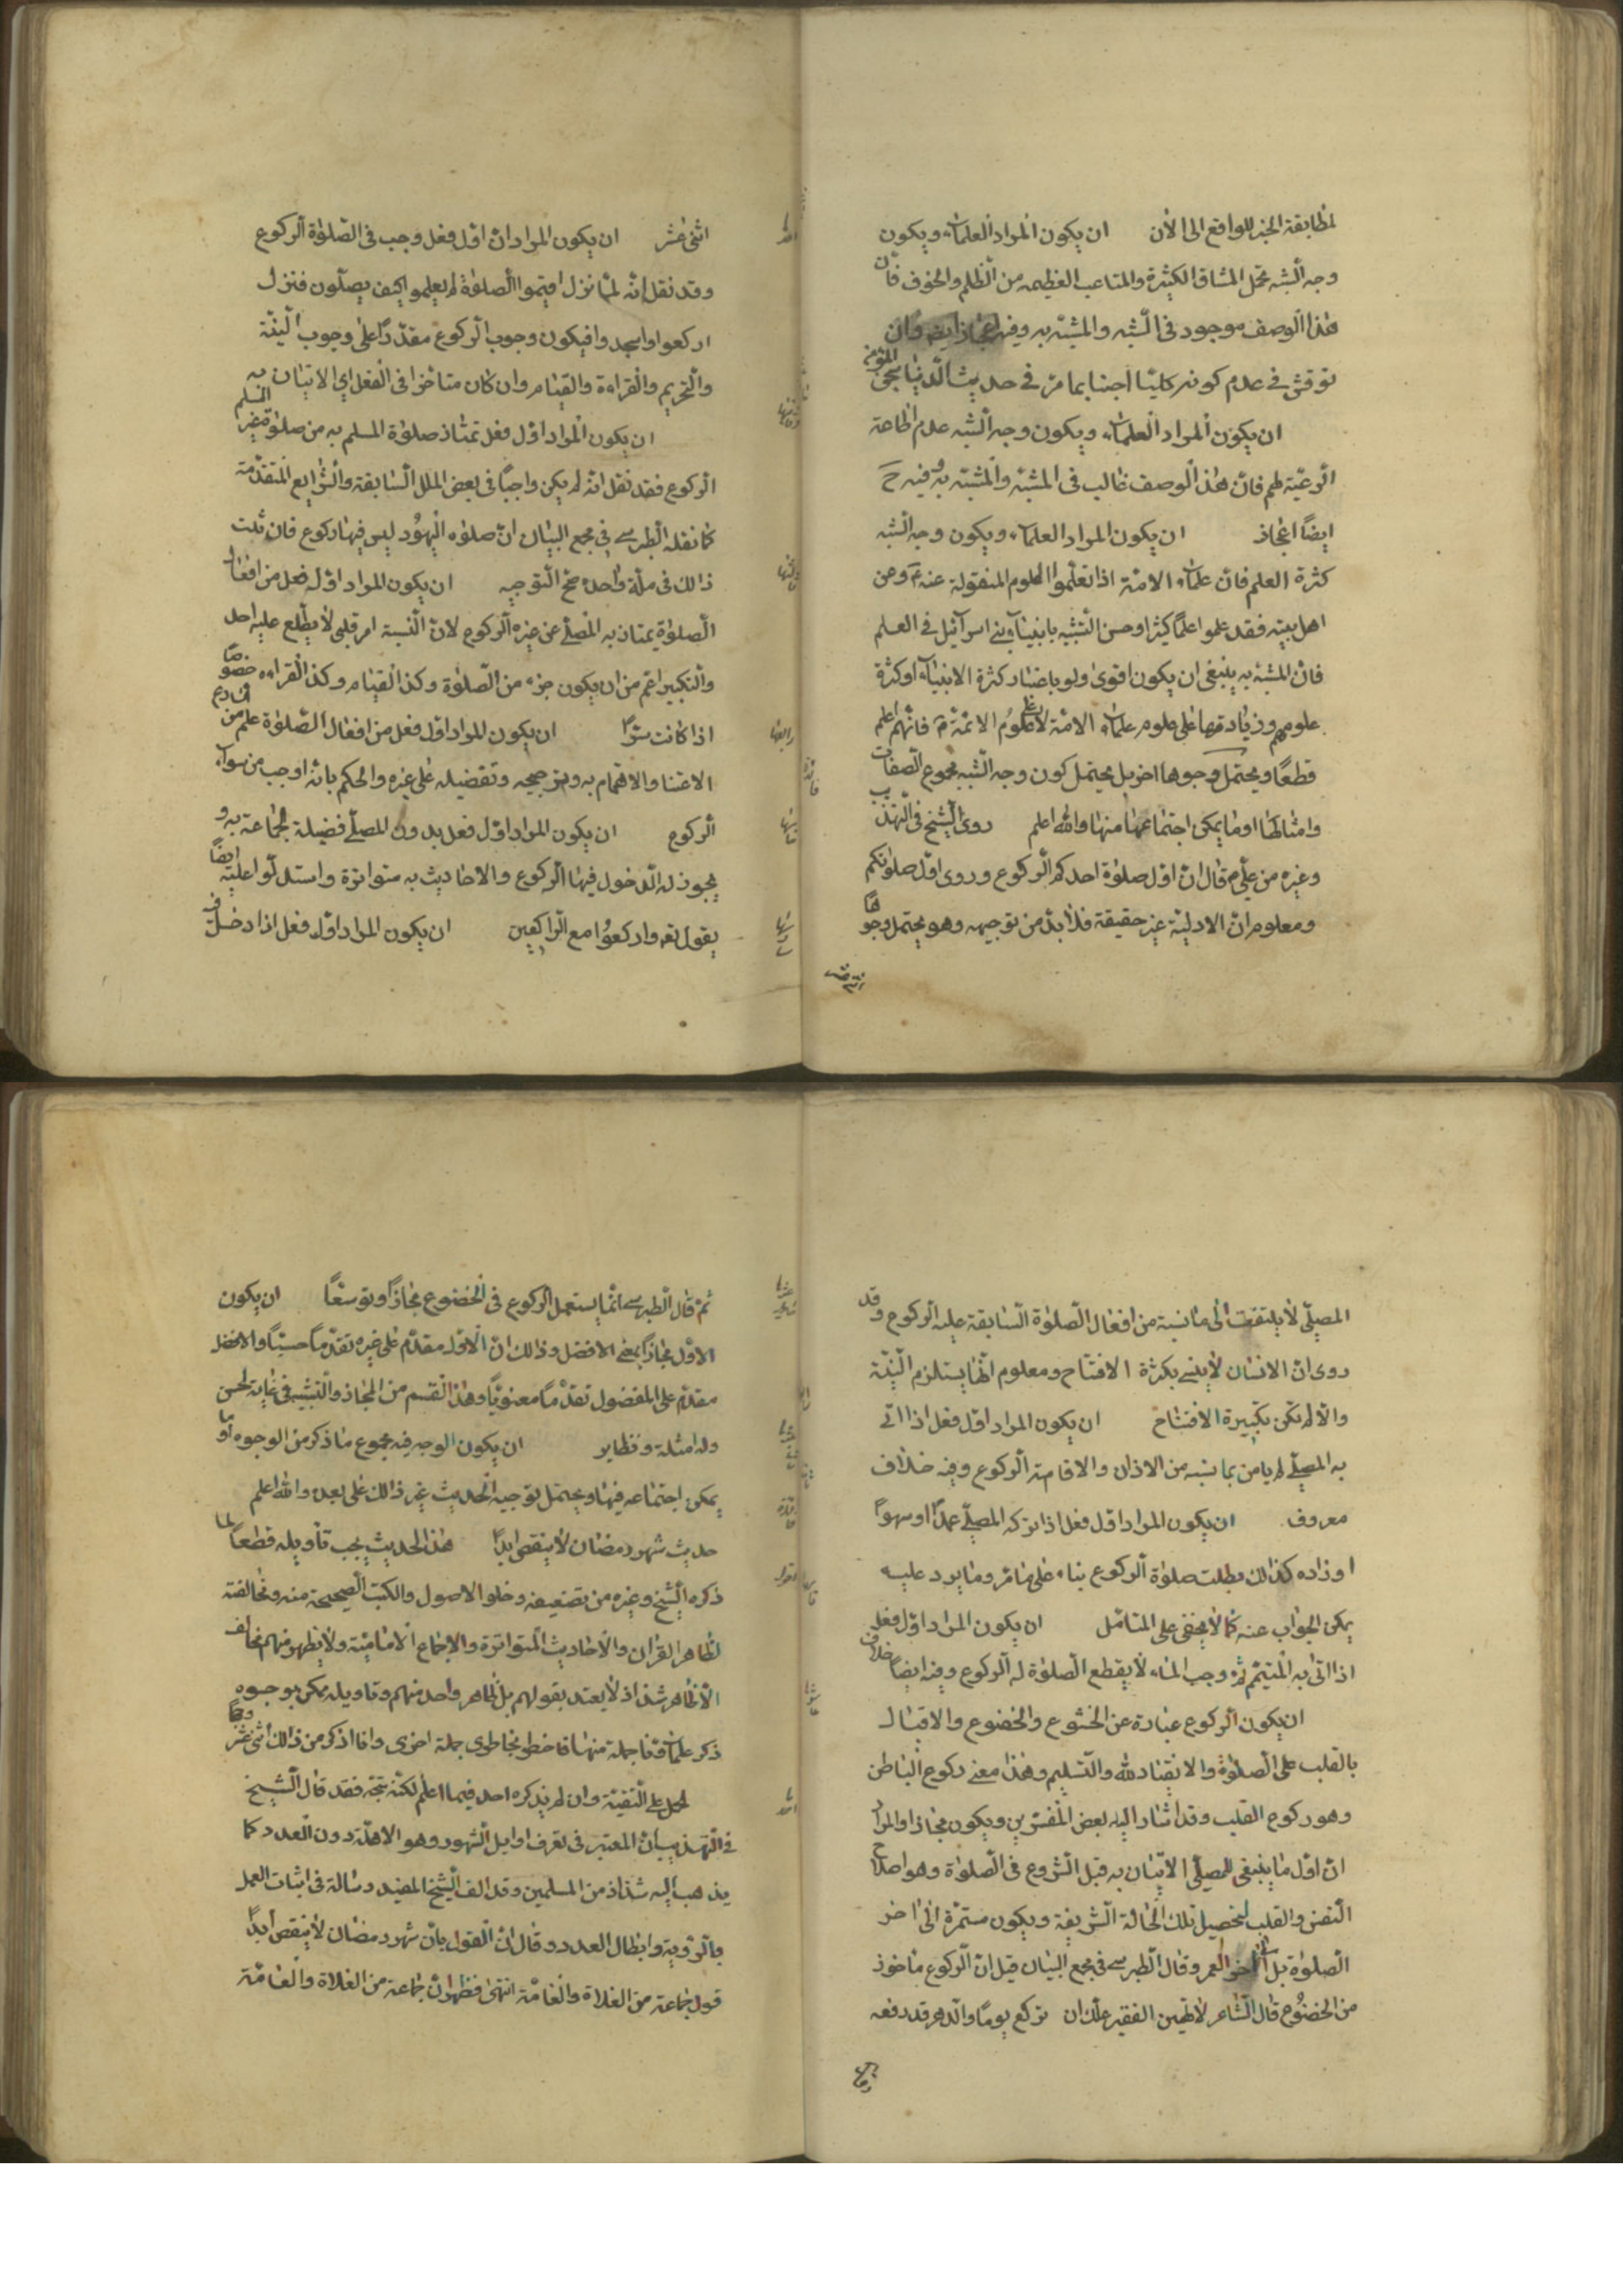 لمطابقة الخبر للواقع الى الآن ان يكون المراد العلماء ويكون
وجه الشبه تحمل المشاق الكثيرة والمتاعب العظيمه من الظلم والخوف فان
هذا الوصف موجود فى الشبه والمشبه به وفيه اعجاز ايضا وان
توقش فى عدم كونه كليا اجبنا بما مر فى حديث الدنيا سجن المؤمن
ان يكون المراد العلماء ويكون وجه الشبه عدم اطاعة
الرعية لهم فان هذا الوصف غالب فى المشبه والمشبه به وفيه ح
ايضا اعجاز ان يكون المراد العلماء ويكون وجه الشبه
كثرة العلم فان علماء الامة اذا تعلموا العلوم المنقولة عنه ع وعن
اهل بيته فقد علموا علما كثيرا وحسن التشبيه بانبياء بنى اسرآئيل فى العلم
فان المشبه به ينبغى ان يكون اقوى ولو باعتبار كثرة الانبياء او كثرة
علومهم وزيادتها على علوم علماء الامة لا على علوم الائمة ع فانهم اعلم
قطعا ويحتمل وجوها اخر بل يحتمل كون وجه الشبه مجموع الصفات
وامثالها او ما يمكن اجتماعها منها والله اعلم روى الشيخ فى التهذيب
وغيره من على ع قال ان اول صلوة احدكم الركوع وروى اول صلوتكم
ومعلوم ان الاولية غير حقيقة فلا بد من توجيهه وهو يحتمل وجوها
اثنى عشر
اثنى عشر ان يكون المراد ان اول فعل وجب فى الصلوة الركوع
وقد نقل انه لما نزل اقيموا الصلوة لم يعلموا كيف يصلون فنزل
اركعوا واسجدوا فيكون وجوب الركوع مقدرا على وجوب النية
والتحريم والقراءة والقيام وان كان متاخرا فى الفعل اى الاتيان به
ان يكون المراد اول فعل تمتاز صلوة المسلم به من صلوة غير المسلم
الركوع فقد نقل انه لم يكن واجبا فى بعض الملل السابقة والشرايع المتقدمة
كما نقله الطبرسى فى مجمع البيان ان صلوة اليهود ليس فيها ركوع فان ثبت
ذالك فى ملة واحدة صح التوجيه ان يكون المراد اول فعل من افعال
الصلوة يمتاز به المصلى عن غيره الركوع لان النية امر قلبى لا يطلع عليه احد
والتكبير اعم من ان يكون جزء من الصلوة وكذا القيام وكذا القراءه خصوصا
اذا كانت سرا ان يكون المراد اول فعل من افعال الصلوة علم من الشارع
الاعتنا والاهتمام به وترجيحه وتفضيله على غيره والحكم بانه اوجب من سواه
الركوع ان يكون المراد اول فعل يدرك المصلى فضيلة الجماعة به و
يجوز له الدخول فيها الركوع والاحاديث به متواترة واستدلوا عليه ايضا
بقوله تعه واركعوا مع الراكعين ان يكون المراد اول فعل اذا دخل فى
المصلى لا يلتفت الى ما نسيه من افعال الصلوة السابقة عليه الركوع وقد
روى ان الانسان لا ينسى تكبيرة الافتتاح ومعلوم انها يستلزم النية
والا لم تكن تكبيرة الافتتاح ان يكون المراد اول فعل اذا اتى
به المصلى لم يامن بما نسيه من الاذان والاقامة الركوع وفيه خلاف
معروف ان يكون المراد اول فعل اذا تركه المصلى عمدا او سهوا
او زاده كذالك بطلت صلوة الركوع بناء على ما مر وما يرد عليه
يمكن الجواب عنه كما لا يخفى على المتامل ان يكون المراد اول فعل
اذا اتى به المتيمم ثم وجب الماء لا يقطع الصلوة له الركوع وفيه ايضا خلاف
ان يكون الركوع عبارة عن الخشوع والخضوع والاقبال
بالقلب على الصلوة والانقياد لله والتسليم وهذا معنى ركوع الباطن
وهو ركوع القلب وقد اشار اليه بعض المفسرين ويكون مجازا والمراد
ان اول ما ينبغى للمصلى الاتيان به قبل الشروع فى الصلوة وهو اصلاح
النفس والقلب لتحصيل تلك الحالة الشريفة ويكون مستمرة الى اخر
الصلوة بل الى اخر العمر وقال الطبرسى فى مجمع البيان قيل ان الركوع ماخوذ
من الخضوع قال الشاعر لا تهين الفقير علك ان تركع يوما والدهر قد رفعه
ثم قال الطبرسى انما يستعمل الركوع فى الخضوع مجازا وتوسعا ان يكون
الاول مجازا بمعنى الافضل وذالك ان الاول مقدم على غيره تقدما حسيا والافضل
مقدم على المفضول تقدما معنويا وهذا القسم من المجاز والتشبيه فى غاية الحسن
وله امثلة ونظاير ان يكون الوجه فيه مجموع ما ذكر من الوجوه او ما
يمكن اجتماعه فيها ويحتمل توجيه الحديث غير ذالك على بعد والله اعلم
حديث شهر رمضان لا ينقص ابدا هذا الحديث يجب تأويله قطعا لما
ذكره الشيخ وغيره من تضعيفه وخلو الاصول والكتب الصحيحة منه ومخالفته
لظاهر القران والاحاديث المتواترة والاجماع الامامية ولا يظهر منهم مخالف
الا ظاهر شذاذ لا يعتد بقولهم بل ظاهر واحد منهم وتاويله ممكن بوجوه
ذكر علماؤنا جملة منها فاخطر بخاطرى جملة اخرى وانا اذكر من ذالك اثنى عشر وجها
الحمل على التقية وان لم يذكره احد فيما اعلم لكنه متجه فقد قال الشيخ
فى التهذيب ان المعتبر فى تعرف اوايل الشهور وهو الاهلة دون العدد كما
يذهب اليه شذاذ من المسلمين وقد الف الشيخ المفيد رسالة فى اثبات العمل
بالرؤية وابطال العدد وقال ان القول بان شهر رمضان لا ينقص ابدا
قول جماعة من الغلاة والعامة انتهى فظهر ان جماعة من الغلاة والعامة